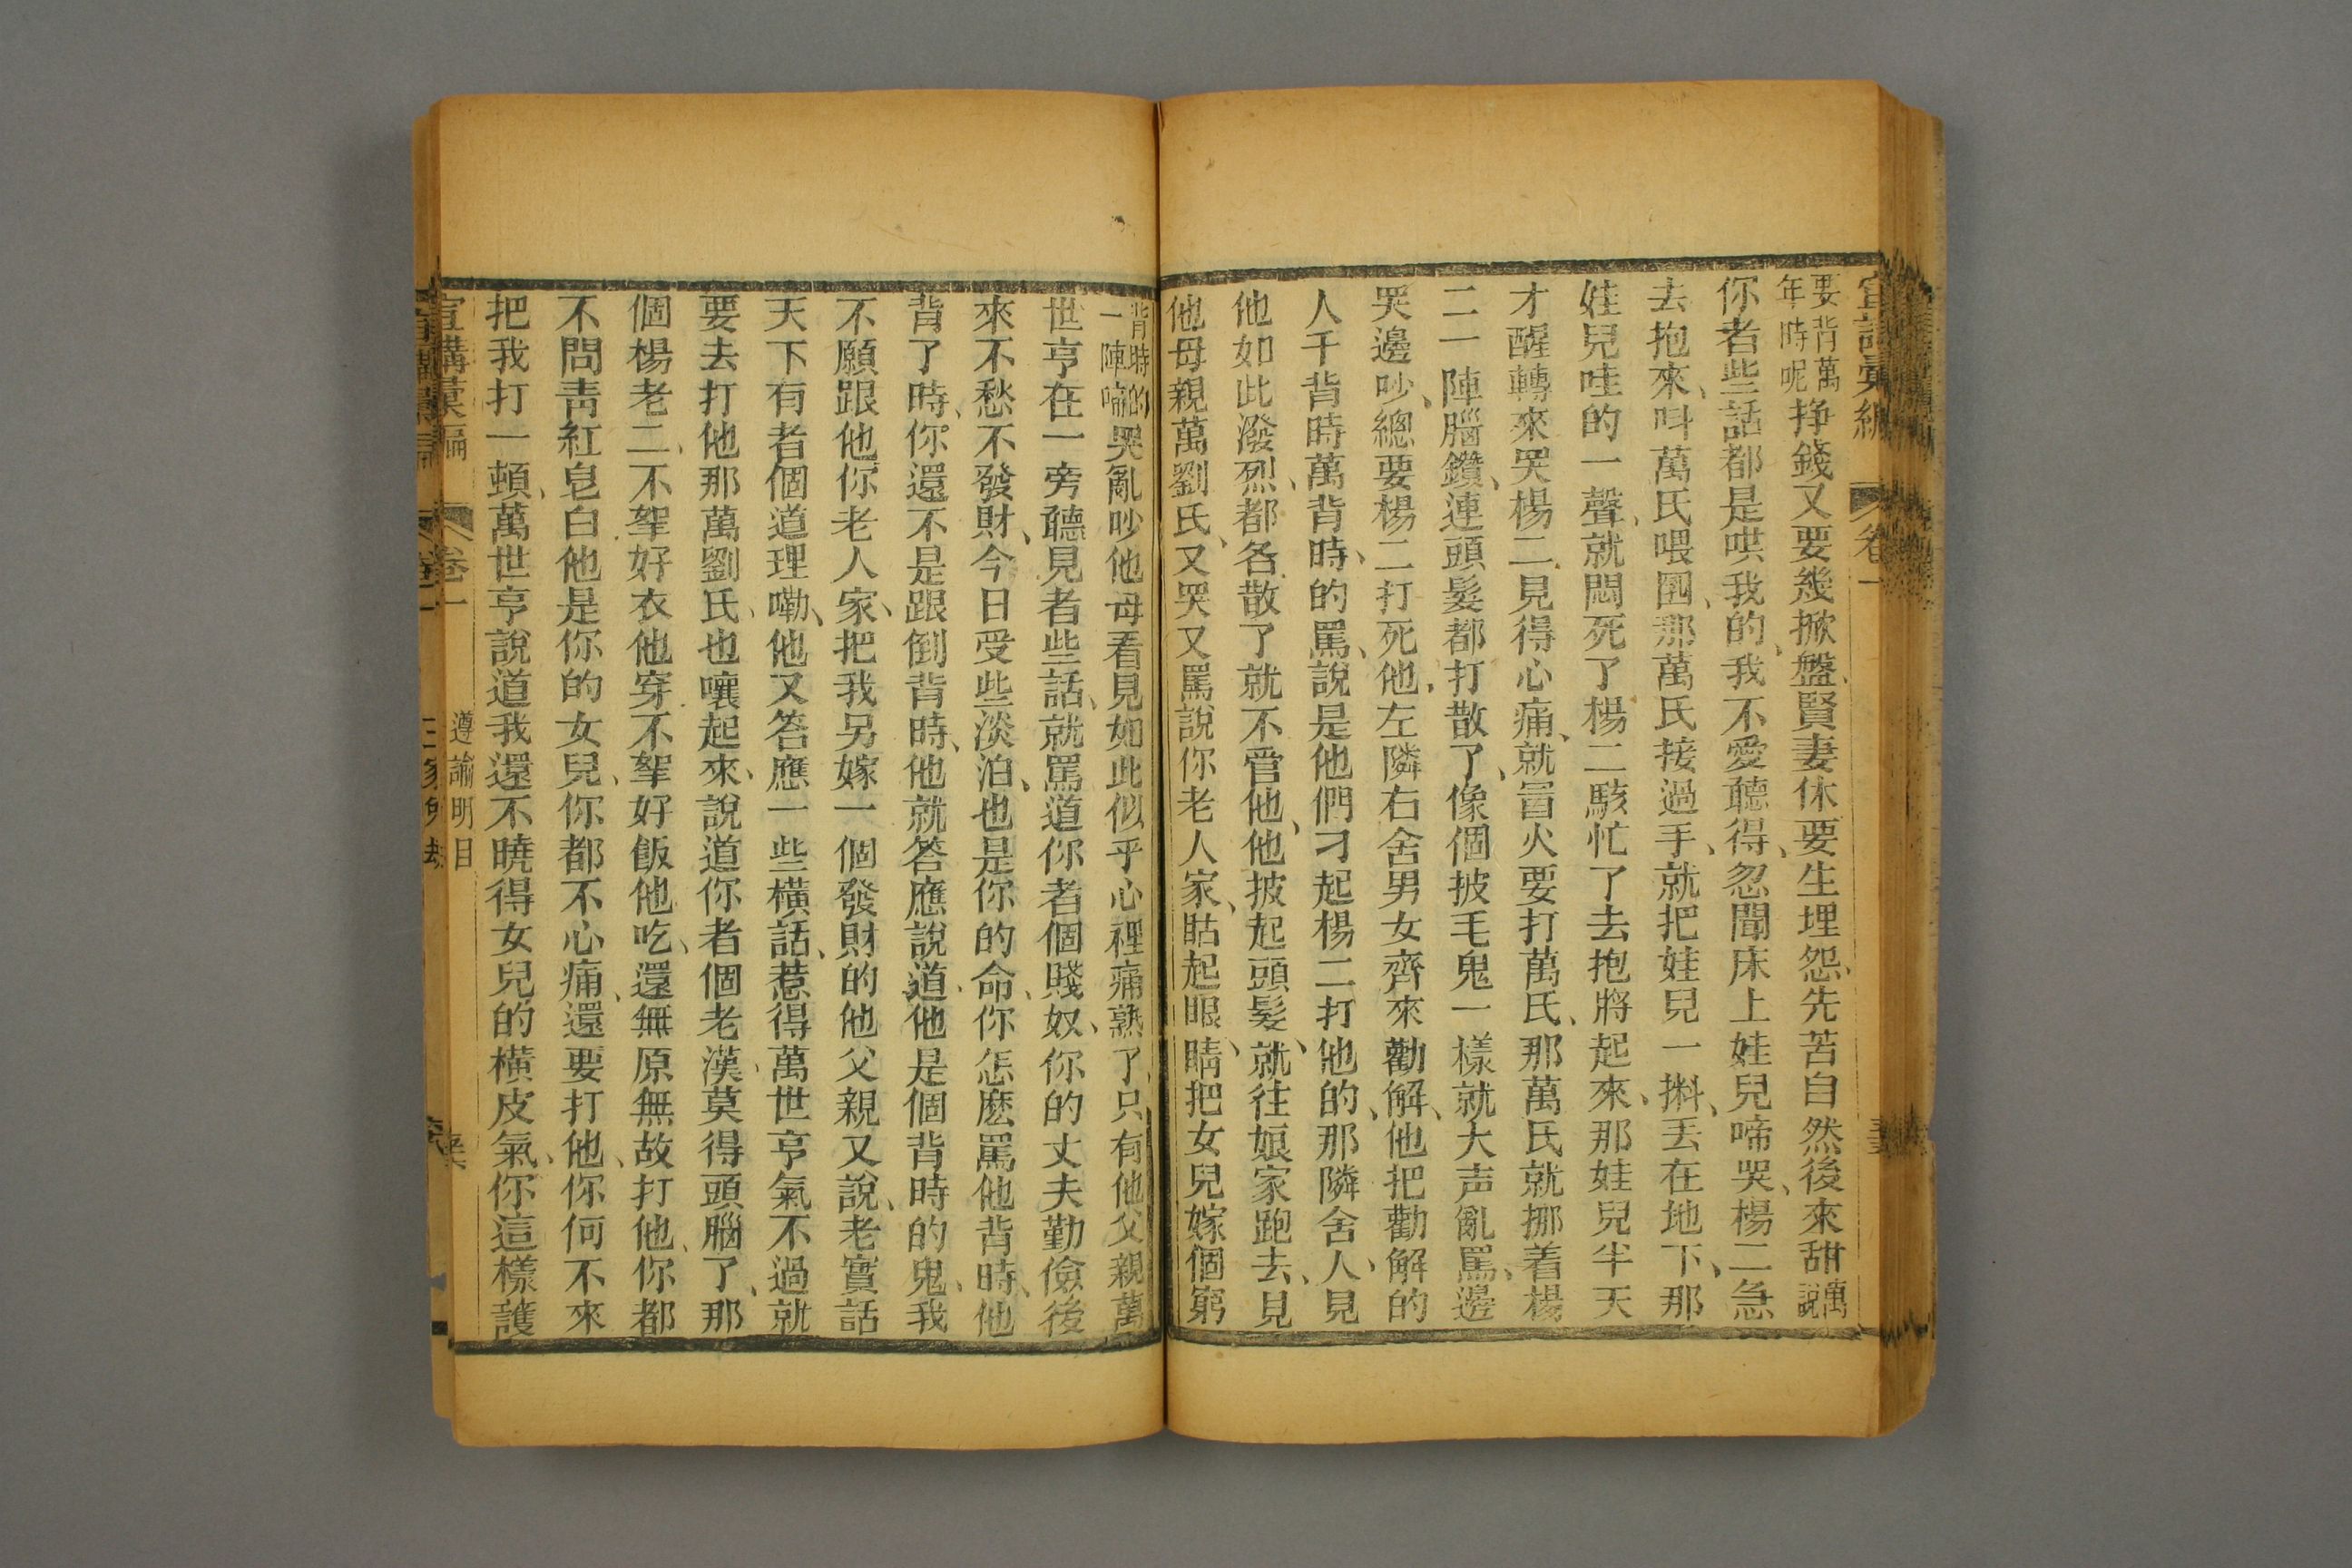 宣講彙編 卷一
要背萬
年時呢
掙錢又要幾掀盤、賢妻休要生埋怨、先苦自然後來甜
萬
說
你者些話都是哄我的、我不愛聽得、忽聞床上娃兒啼哭、楊二急
去抱來、呌萬氏喂、那萬氏接過手、就把娃兒一㨪、丟在地下、那
娃兒哇的一聲、就悶死了楊二駭忙了去抱將起來、那娃兒半天
才醒轉來哭楊二見得心痛、就冒火要打萬氏、那萬氏就挪着楊
二一陣腦鑽、連頭髮都打散了、像個披毛鬼一樣就大声亂罵、邊
哭邊吵、總要楊二打死他、左隣右舍男女齊來勸解、他把勸解的
人千背時萬背時、的罵、說是他們刁起楊二打他的、那隣舍人、見
他如此潑烈、都各散了就不管他、他披起頭髮、就往娘家跑去、見
他母親萬劉氏、又哭又罵說你老人家、眙起眼、睛把女兒嫁個窮
背時的
一陣啼
哭亂吵他母看見如此似乎心裡痛熟了、只有他父親萬
世亨在一旁聽見者些話、就罵道你者個賤奴、你的丈夫勤儉後
來不愁不發財、今日受些淡泊、也是你的命、你怎麼罵他背時、他
背了時、你還不是跟倒背時、他就答應說道、他是個背時的鬼、我
不願跟他你老人家、把我另嫁一個發財的他父親又說、老實話
天下有者個道理嘞、他又答應一些橫話、惹得萬世亨氣不過就
要去打他那萬劉氏、也嚷起來、說道你者個老漢、莫得頭腦了、那
個楊老二、不挐好衣他穿不挐好飯他吃、還無原無故打他、你都
不問靑紅皂白他是你的女兒、你都不心痛、還要打他、你何不來
把我打一頓、萬世亨說道我還不曉得女兒的橫皮氣、你這樣護
宣講彙編 卷一 遵諭明目